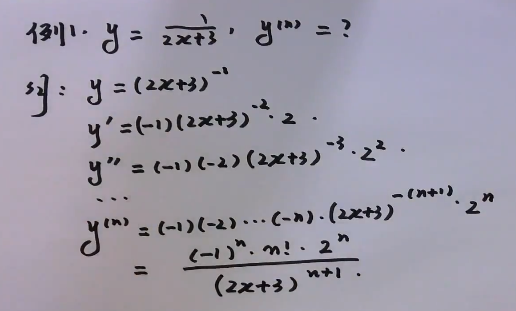 例1. y = 1/(2x+3), y⁽ⁿ⁾ = ?
解: y = (2x+3)⁻¹
y' = (-1)(2x+3)⁻²·2.
y'' = (-1)(-2)(2x+3)⁻³·2².
...
y⁽ⁿ⁾ = (-1)(-2)···(-n)·(2x+3)⁻⁽ⁿ⁺¹⁾·2ⁿ
= (-1)ⁿ·n!·2ⁿ/(2x+3)ⁿ⁺¹.